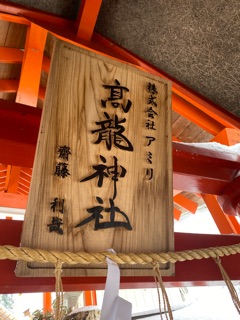 株式会社 アミリ
高龍神社
齋藤 利